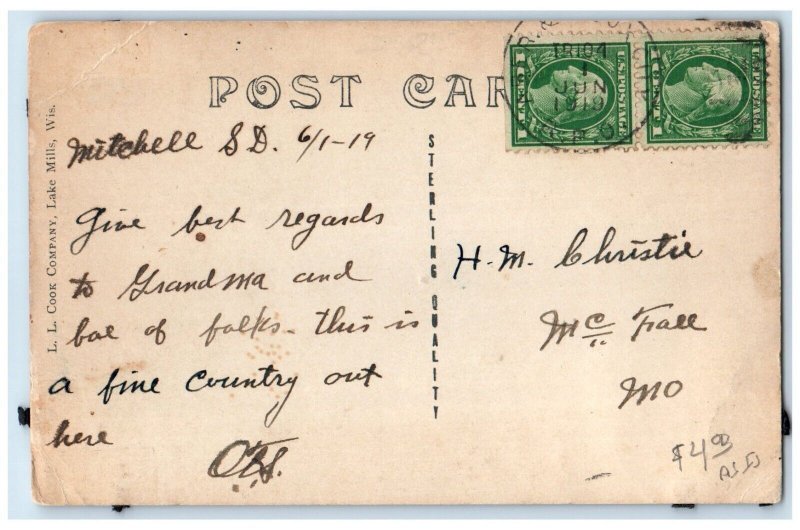 POST CAR
L. L. COOK COMPANY, LAKE MILLS, WIS.
STERLING QUALITY
TRI04
1
JUN
1919
R.P.O.
U.S.POSTAGE
U.S.POSTAGE
Mitchell S.D. 6/1-19
Give best regards
to Grandma and
bal of folks. This is
a fine country out
here
H. M. Christie
Mc Fall
MO
$4.00